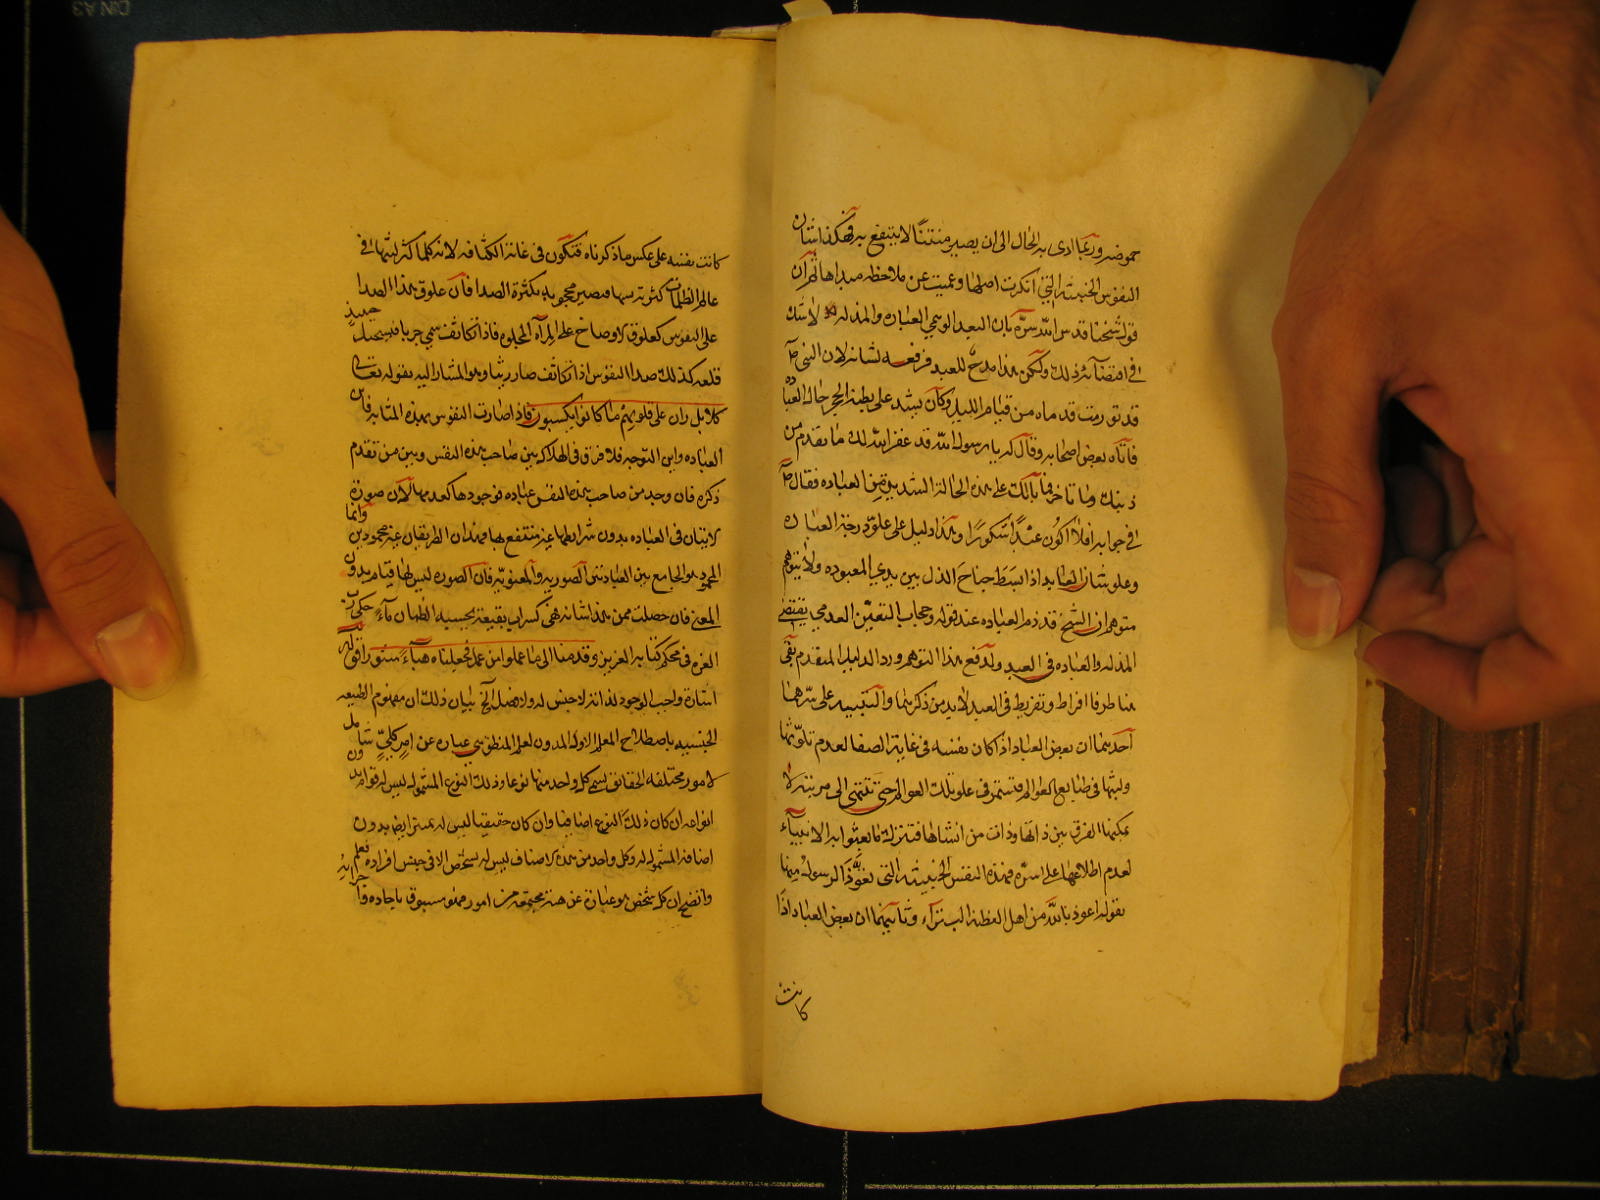 حموضه وربما ادى به الحال الى ان يصير منتنًا لا ينتفع به فهكذا شان
النفوس الخبيثه التي انكرت اصلها وعميت عن ملاحظه مبداها ثم ان
قول شيخنا قدس الله سره بان البعد الوسمي العباده والمذله لا شك
في اقتضائه ذلك ولكن هذا مدح للعبد فرفعه لشانه لان النبي
قد تورمت قدماه من قيام الليل وكان يشد على بطنه الحجر حال العباده
فاتاه بعض اصحابه وقال له يا رسول الله قد غفر الله لك ما تقدم من
ذنبك وما تاخر فما بالك على هذه الحالة الشديدة من العباده فقال
في جوابه افلا اكون عبدًا شكورًا وهذا دليل على علو درجة العباده
وعلو شان العابد اذا بسط جناح الذل بين يدي المعبوده ولا يتوهم
متوهم ان الشيخ قد ذم العباده عند قوله وحجاب التعين العدمي يقتضي
المذله والعباده في العبد ولدفع هذا التوهم ورد الدليل المتقدم بقي
هنا طرفا افراط وتفريط في العبد لابد من ذكرهما والتنبيه على سرهما
احدهما ان بعض العباد اذا كان نفسه في غاية الصفا لعدم تلوثها
ولبثها في طبايع العوالم فتستمر في علو تلك العوالم حتى تنتهي الى مرتبة لا
يمكنها الفرق بين ذاتها وذات من انشاها فتنزله ما بعثوا به الانبياء
لعدم اطلاعها على سره فهذه النفس الخبيثه التي تعوذ الرسول منها
بقوله اعوذ بالله من اهل الفطنة البتراء وثانيهما ان بعض العباد اذا
كانت
كانت نفسه على عكس ما ذكرناه فتكون في غاية الكثافه لانه كلما كثر لبثها في
عالم الظلمات كثر تدنسها فتصير محجوبه بكثرة الصدا فان علوق هذا الصدا
على النفوس كعلوق الاوصاخ على المرآة المجلوه فاذا تكاثف سمي حربا فيستحيل حينئذ
قلعه كذلك صدا النفوس اذا تكاثف صار رينا وهو المشار اليه بقوله تعالى
كلا بل ران على قلوبهم ما كانوا يكسبون فاذا صارت النفوس بهذه المثابه فاين
العباده واين التوجه فلا فرق في الهلاك بين صاحب هذه النفس وبين من تقدم
ذكره فان وجد من صاحب هذه النفس عباده فوجودها كعدمها لان صورة
الاتيان في العباده بدون شرايطها غير منتفع بها فهذان الطريقان غير محمودين وانما
المحمود هو الجامع بين العبادتين الصوريه والمعنويه فان الصوره ليس لها قيام بدون
المعنى فان حصلت ممن هذا شانه فهي كسراب بقيعة يحسبه الظمان ماء حكى رب
العزه في محكم كتابه العزيز وقدمنا الى ما عملوا من عمل فجعلناه هباء منثورا قوله
اشارة واجب الوجود لذاته لا جنس له ولا فصل الخ بيان ذلك ان مفهوم الطبيعه
الجنسيه باصطلاح المعلم الاول المدون لعلم المنطق هي عباره عن امر كلي شامل
لامور مختلفه الحقائق يسمى كل واحد منها نوعا وذلك النوع المشمول ليس له قوام بدون
انواعه ان كان ذلك النوع اضافيا وان كان حقيقيا ليس له تميز ايضا بدون
اضافة المشموله له وكل واحد من هذه الاصناف ليس له تشخص الا في جنس افراده
واتضح ان كل شخص هو عبارة عن هيئة مجتمعه من امور فهو مسبوق بايجاده